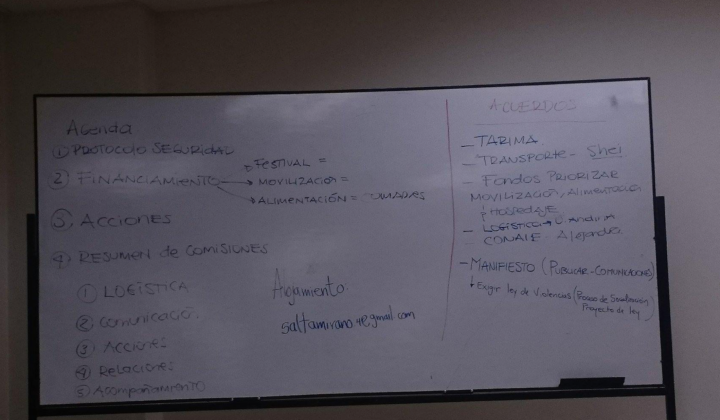 Agenda
① PROTOCOLO SEGURIDAD
② FINANCIAMIENTO
FESTIVAL =
MOVILIZACIÓN =
ALIMENTACIÓN =
③ ACCIONES
④ RESUMEN de COMISIONES
① LOGÍSTICA
② Comunicación
③ Acciones
④ Relaciones
⑤ Acompañamiento
ACUERDOS
– TARIMA
– TRANSPORTE – Shei
– Fondos PRIORIZAR
MOVILIZACIÓN, Alimentación
Hospedaje
– LOGÍSTICO →
CONAIE – Alejandra
– MANIFIESTO (PUBLICAR – COMUNICADORES)
Exigir ley de Violencias
Proyecto de ley